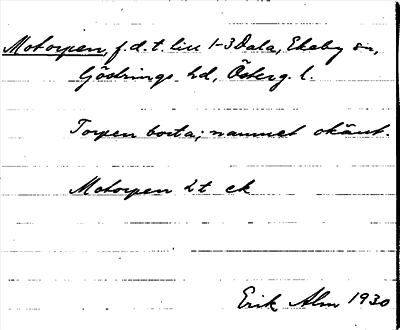 Motorpen, f.d. t. liu 1-3 Dala, Ekeby sn,
Göstrings hd, Österg. l.
Torpen borta; namnet okänt.
Motorpen 2 t ek
Erik Alm 1930